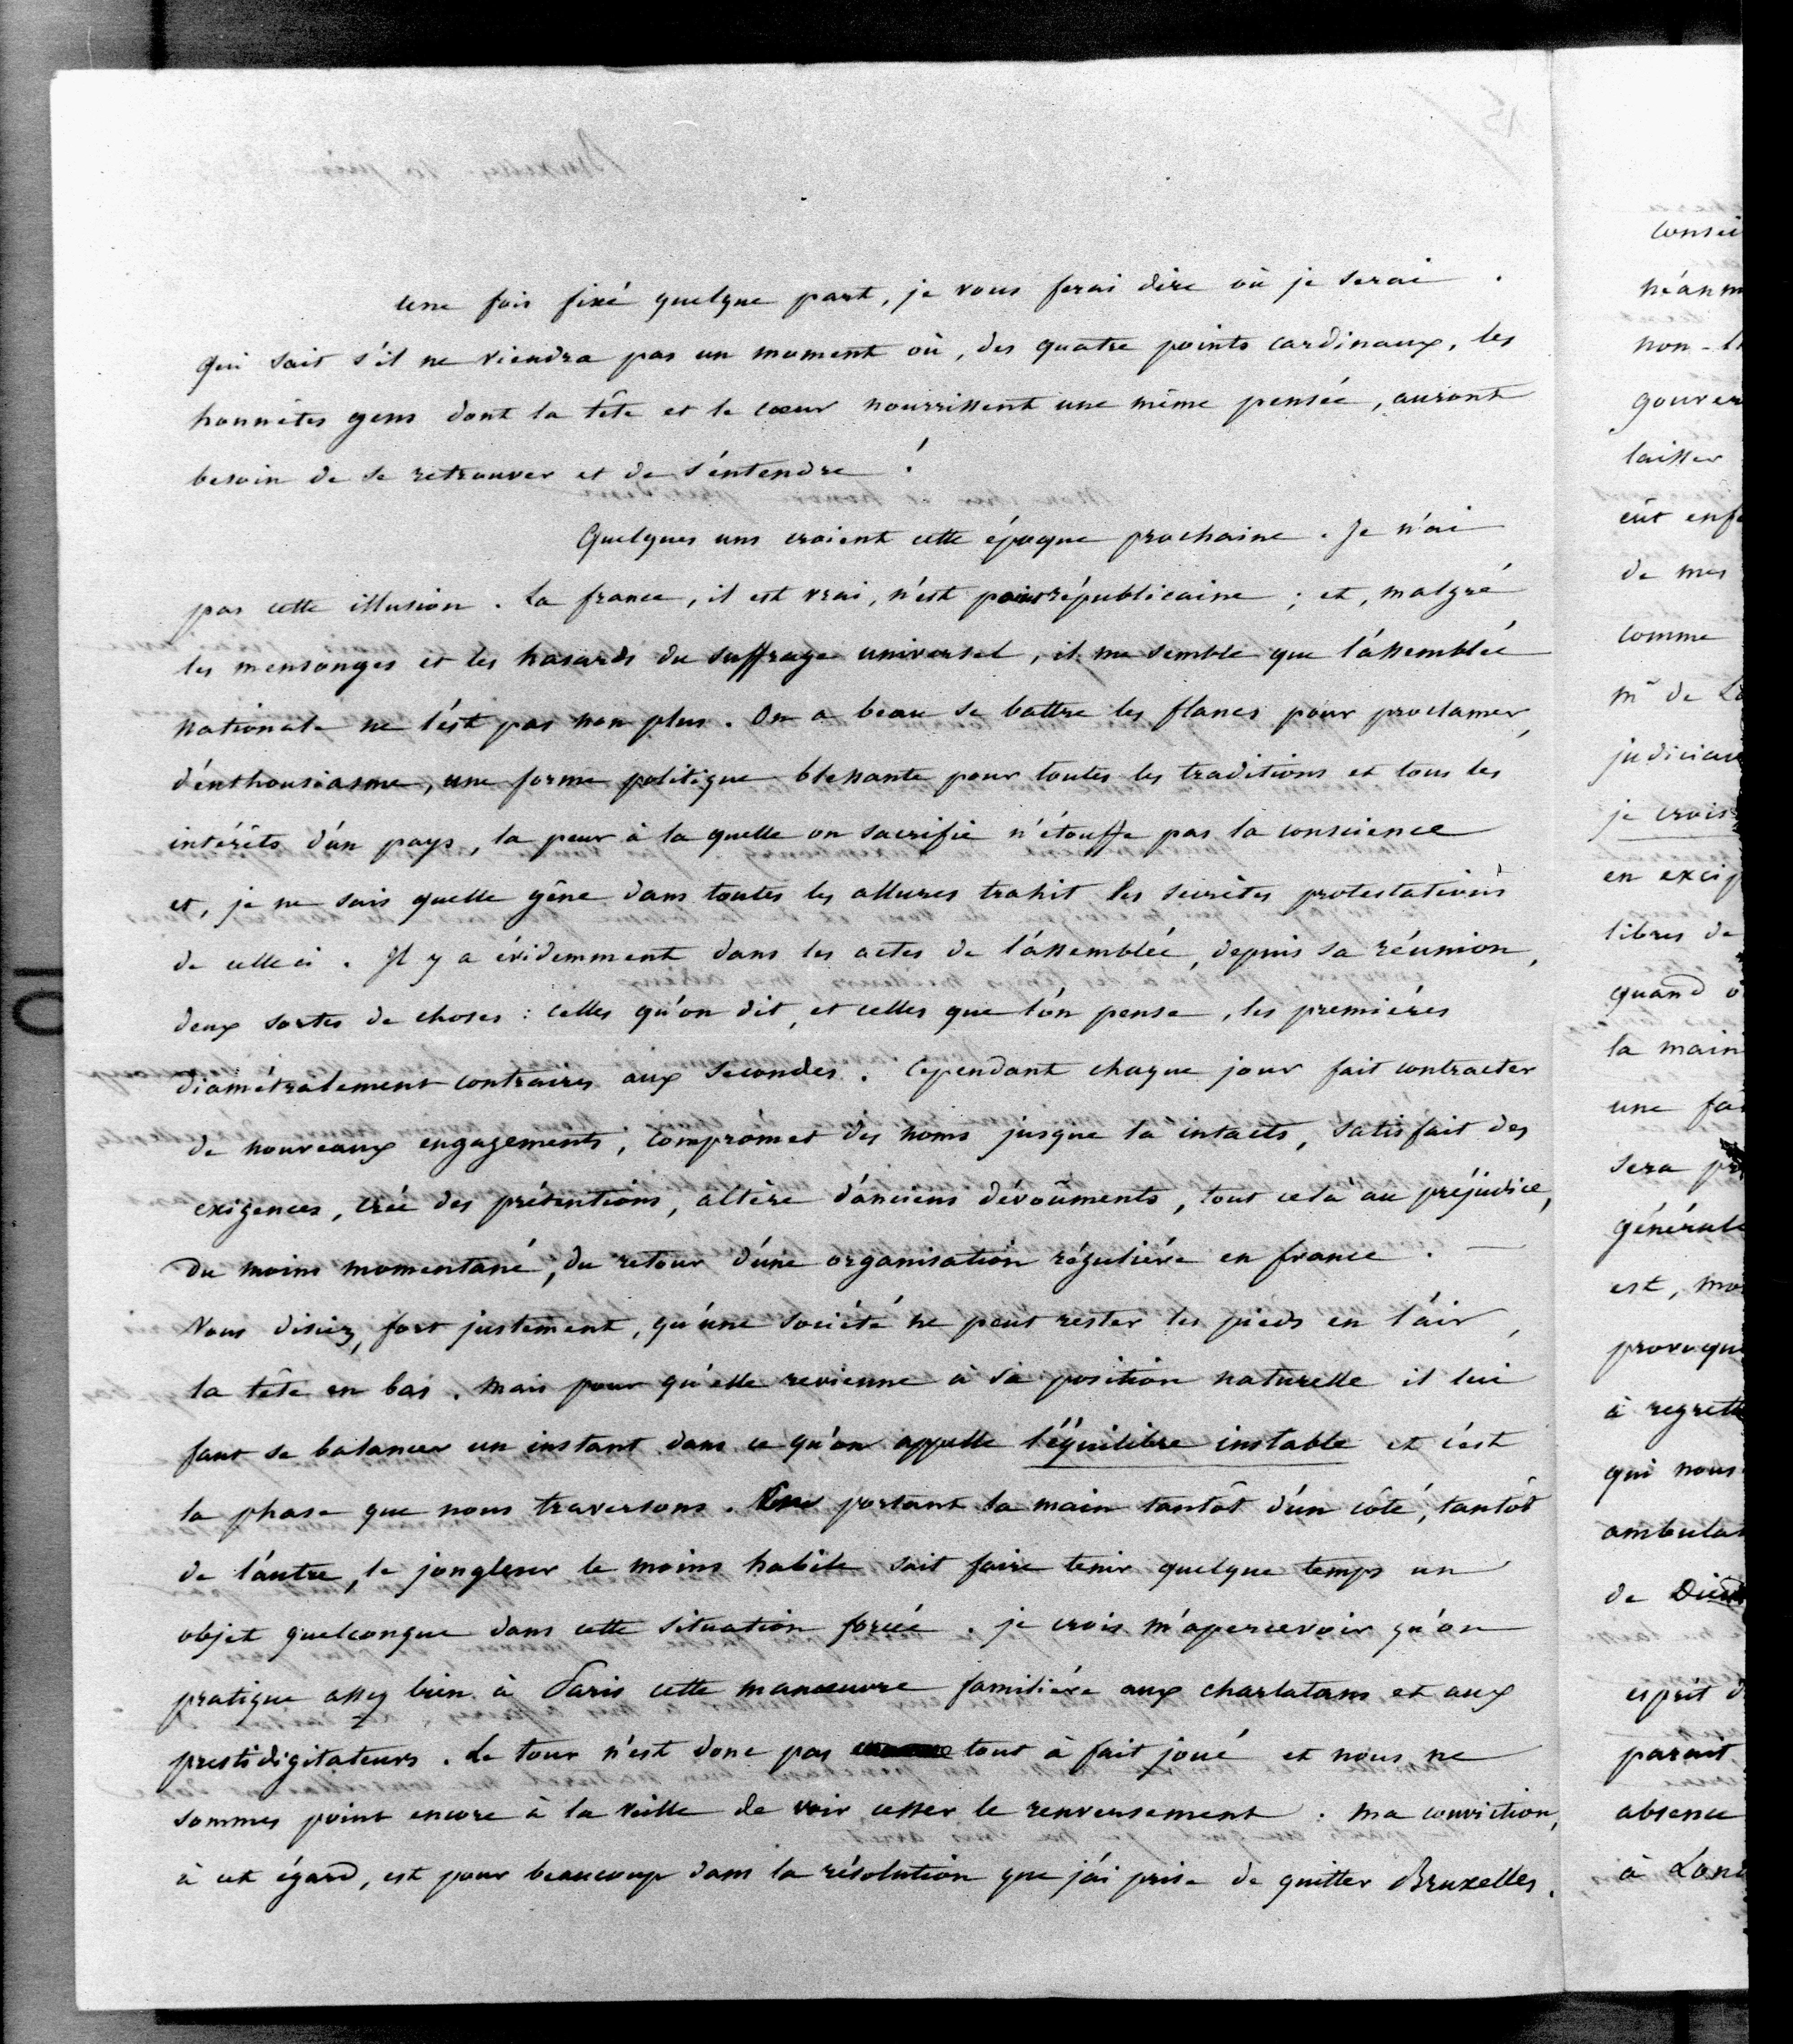 une fois fixé quelque part, je vous ferai dire où je serai.
qui sait s'il ne viendra pas un moment où, des quatre points cardinaux, les
honnêtes gens dont la tête et le cœur nourrissent une même pensée, auront
besoin de se retrouver et de s'entendre !
Quelques uns croient cette époque prochaine. Je n'ai
pas cette illusion. La france, il est vrai, n'est point républicaine ; et, malgré
les mensonges et les hasards du suffrage universel, il me semble que l'assemblée
nationale ne l'est pas non plus. On a beau se battre les flancs pour proclamer,
d'enthousiasme, une forme politique blessante pour toutes les traditions et tous les
intérêts d'un pays, la peur à la quelle on sacrifie n'étouffe pas la conscience
et, je ne sais quelle gêne dans toutes les allures trahit les secrètes protestations
de celle ci. Il y a évidemment dans les actes de l'assemblée, depuis sa réunion,
deux sortes de choses : celles qu'on dit, et celles que l'on pense, les premières
diamétralement contraires aux secondes. Cependant chaque jour fait contracter
de nouveaux engagements, compromet des noms jusque là intacts, satisfait des
exigences, crée des prétentions, altère d'anciens dévoûments, tout cela au préjudice,
du moins momentané, du retour d'une organisation régulière en france. —
Vous disiez, fort justement, qu'une société ne peut rester les pieds en l'air,
la tête en bas. Mais pour qu'elle revienne à sa position naturelle il lui
faut se balancer un instant dans ce qu'on appelle l'équilibre instable et c'est
la phase que nous traversons. En portant la main tantôt d'un côté, tantôt
de l'autre, le jongleur le moins habile sait faire tenir quelque temps un
objet quelconque dans cette situation forcée. je crois m'apercevoir qu'on
pratique assez bien à Paris cette manœuvre familière aux charlatans et aux
prestidigitateurs. Le tour n'est donc pas tout à fait joué et nous ne
sommes point encore à la veille de voir cesser le renversement. Ma conviction,
à cet égard, est pour beaucoup dans la résolution que j'ai prise de quitter Bruxelles.
consei
néanm
non-
gouver
laisser
eût enf
de mes
comme
mr de L
judiciai
je crois
en excip
libres de
quand
la main
une fa
sera
générale
est, mo
provoqu
à regrett
qui nous
ambula
de Dieu
esprit d
parait
absence
à Lon